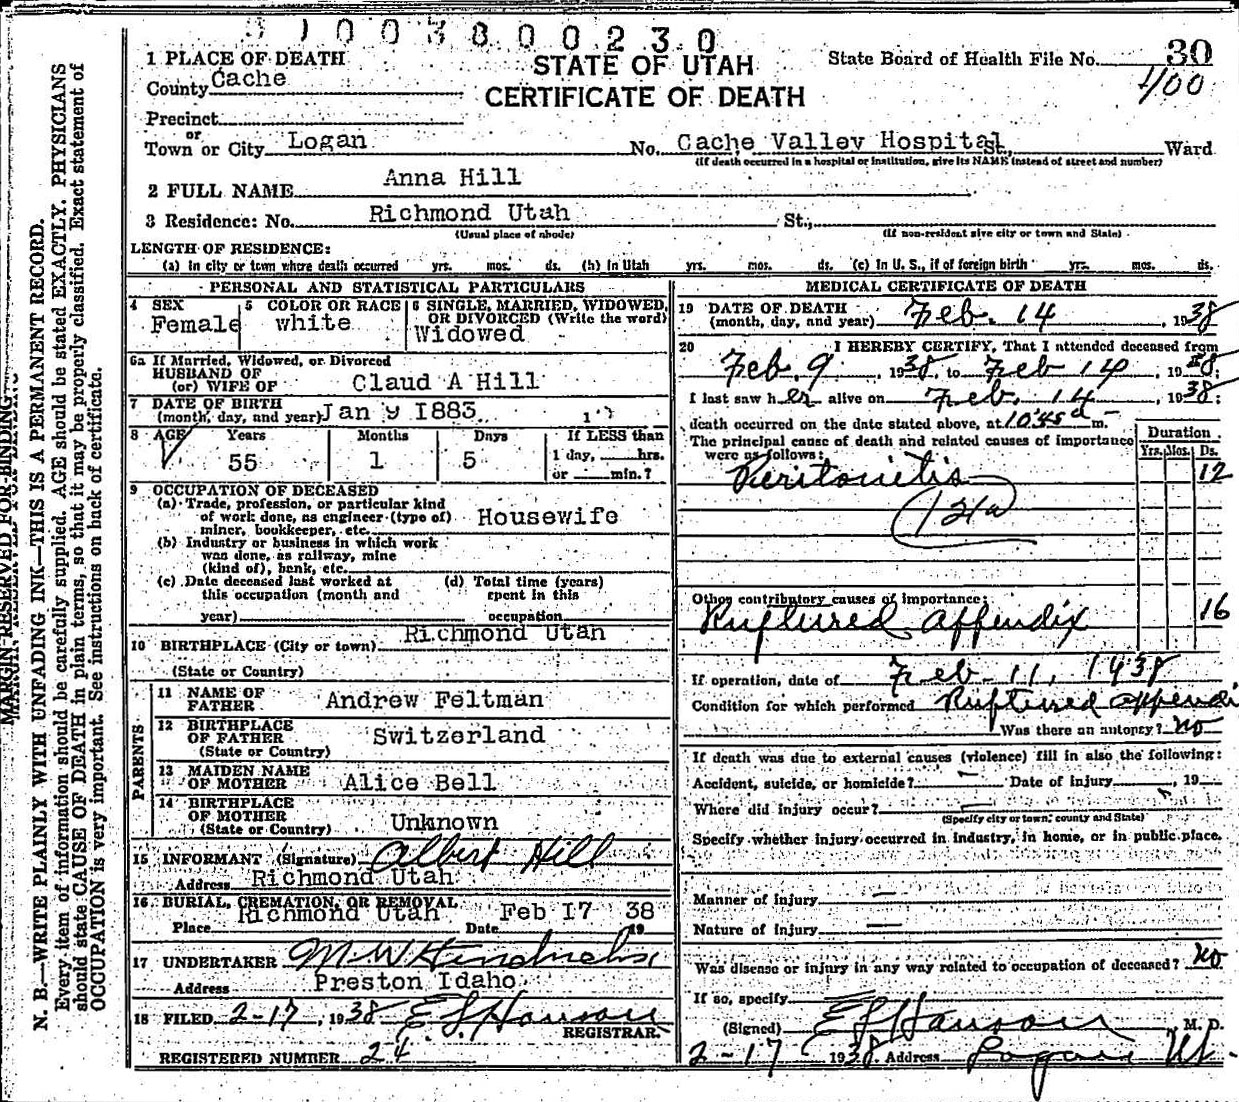 9 1 0 0 3 8 0 0 2 3 0
STATE OF UTAH
CERTIFICATE OF DEATH
State Board of Health File No. 30
400
1 PLACE OF DEATH
County Cache
Precinct
or
Town or City Logan No. Cache Valley Hospital St., Ward
(If death occurred in a hospital or institution, give its NAME instead of street and number)
2 FULL NAME Anna Hill
3 Residence: No. Richmond Utah St.,
(Usual place of abode) (If non-resident give city or town and State)
LENGTH OF RESIDENCE:
(a) In city or town where death occurred yrs. mos. ds. (b) In Utah yrs. mos. ds. (c) In U. S., if of foreign birth yrs. mos. ds.
PERSONAL AND STATISTICAL PARTICULARS
4 SEX Female
5 COLOR OR RACE white
6 SINGLE, MARRIED, WIDOWED, OR DIVORCED (Write the word) Widowed
6a If Married, Widowed, or Divorced
HUSBAND OF
(or) WIFE OF Claud A Hill
7 DATE OF BIRTH
(month, day, and year) Jan 9 1883
8 AGE Years Months Days If LESS than
55 1 5 1 day, hrs.
or min.?
9 OCCUPATION OF DECEASED
(a) Trade, profession, or particular kind
of work done, as engineer (type of) Housewife
miner, bookkeeper, etc.
(b) Industry or business in which work
was done, as railway, mine
(kind of), bank, etc.
(c) Date deceased last worked at
this occupation (month and
year)
(d) Total time (years)
spent in this
occupation
10 BIRTHPLACE (City or town) Richmond Utah
(State or Country)
PARENTS
11 NAME OF
FATHER Andrew Feltman
12 BIRTHPLACE
OF FATHER Switzerland
(State or Country)
13 MAIDEN NAME
OF MOTHER Alice Bell
14 BIRTHPLACE
OF MOTHER
(State or Country) Unknown
15 INFORMANT (Signature) Albert Hill
Address Richmond Utah
16 BURIAL, CREMATION, OR REMOVAL
Place Richmond Utah Date Feb 17 19 38
17 UNDERTAKER M W Hendricks
Address Preston Idaho
18 FILED 2-17, 1938 E L Hanson
REGISTRAR.
REGISTERED NUMBER 24
MEDICAL CERTIFICATE OF DEATH
19 DATE OF DEATH
(month, day, and year) Feb. 14, 1938
20 I HEREBY CERTIFY, That I attended deceased from
Feb. 9, 1938, to Feb 14, 1938;
I last saw her alive on Feb. 14, 1938;
death occurred on the date stated above, at 10:45 a m.
The principal cause of death and related causes of importance
were as follows:
Duration
Yrs. Mos. Ds.
Peritonietis 12
121a
Other contributory causes of importance:
Ruptured appendix 16
If operation, date of Feb 11, 1938
Condition for which performed Ruptured appendi
Was there an autopsy? no
If death was due to external causes (violence) fill in also the following:
Accident, suicide, or homicide? — Date of injury , 19
Where did injury occur? —
(Specify city or town, county and State)
Specify whether injury occurred in industry, in home, or in public place.
Manner of injury —
Nature of injury —
Was disease or injury in any way related to occupation of deceased? no
If so, specify
(Signed) E L Hanson, M. D.
2-17 1938. Address Logan Ut.
MARGIN RESERVED FOR BINDING
N. B.—WRITE PLAINLY WITH UNFADING INK—THIS IS A PERMANENT RECORD.
Every item of information should be carefully supplied. AGE should be stated EXACTLY. PHYSICIANS
should state CAUSE OF DEATH in plain terms, so that it may be properly classified. Exact statement of
OCCUPATION is very important. See instructions on back of certificate.